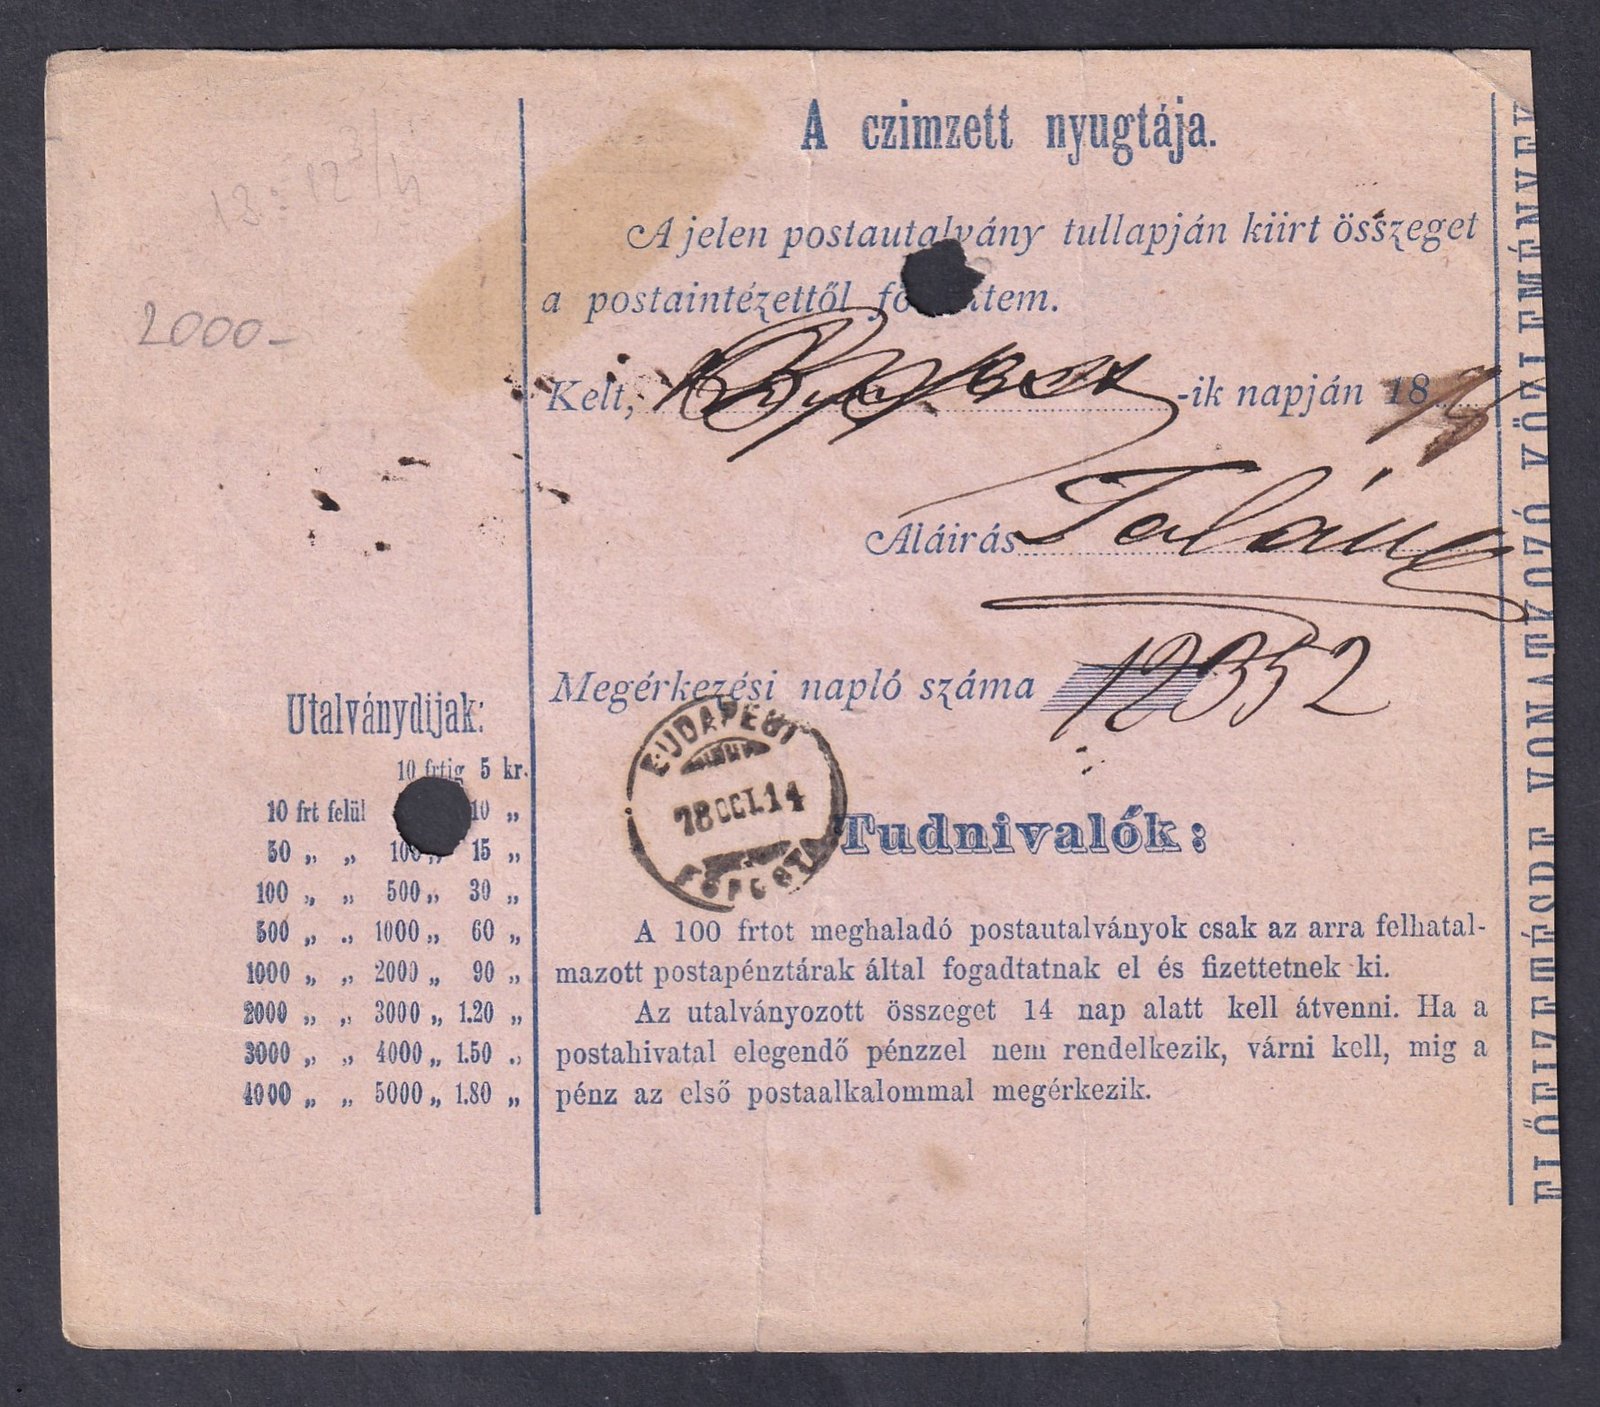 A czimzett nyugtája.
A jelen postautalvány tullapján kiirt összeget
a postaintézettől
Kelt, Bpest -ik napján 18
Aláirás
Megérkezési napló száma 12352
2000-
BUDAPEST
78 OCT. 14
FŐPOSTA
Utalványdijak:
10 frtig 5 kr.
10 frt felül 10 „
50 „ „ 100 „ 15 „
100 „ „ 500 „ 30 „
500 „ „ 1000 „ 60 „
1000 „ „ 2000 „ 90 „
2000 „ „ 3000 „ 1.20 „
3000 „ „ 4000 „ 1.50 „
4000 „ „ 5000 „ 1.80 „
Tudnivalók:
A 100 frtot meghaladó postautalványok csak az arra felhatal-
mazott postapénztárak által fogadtatnak el és fizettetnek ki.
Az utalványozott összeget 14 nap alatt kell átvenni. Ha a
postahivatal elegendő pénzzel nem rendelkezik, várni kell, mig a
pénz az első postaalkalommal megérkezik.
ELŐFIZETÉSRE VONATKOZÓ KÖZLEMÉNYEK